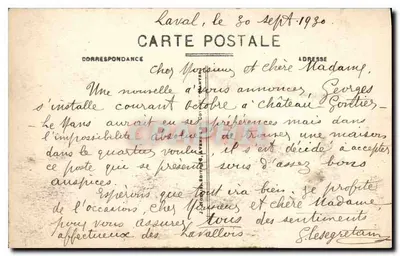 Laval, le 30 sept. 1930.
CARTE POSTALE
CORRESPONDANCE ADRESSE
Cher Monsieur et chère Madame,
Une nouvelle à vous annoncer, Georges
s'installe courant octobre à Château-Gontier.
Le Mans aurait eu ses préférences mais dans
l'impossibilité absolue de trouver une maison
dans le quartier voulu, il s'est décidé à accepter
ce poste qui se présente sous d'assez bons
auspices.
Espérons que tout ira bien. Je profite
de l'occasion, cher Monsieur et chère Madame
pour vous assurer tous des sentiments
affectueux des Lavallois